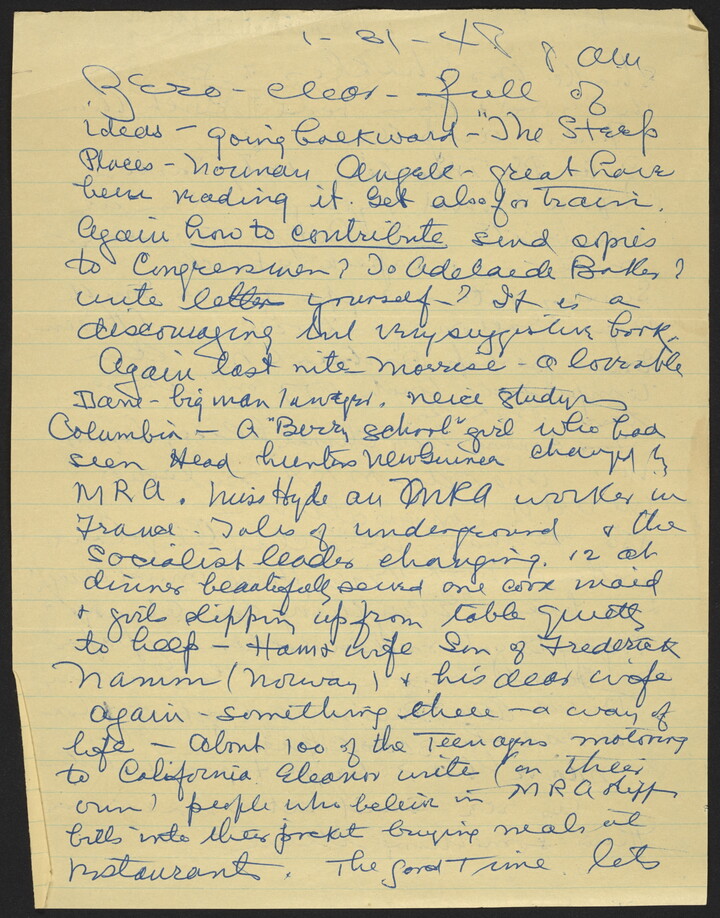 1-31-48 8 am
Zero - clear - full of
ideas - going backward - "The Steep
Places - Norman Angell - great have
been reading it. Get also for train.
Again how to contribute send copies
to Congressmen? To Adelaide Baker?
write letter yourself-? It is a
discouraging but very suggestive book.
Again last nite - a loveable
Dane - big man lawyer. neice studying
Columbia - A "Berry school" girl who had
seen Head hunters New Guinea changed by
MRA. Miss Hyde an MRA worker in
France. Tales of underground & the
Socialist leader changing. 12 at
dinner beautifully served one cook maid
& girls slipping up from table quietly
to help - wife Son of Frederick
(Norway) & his dear wife
again - something there - a way of
life - About 100 of the Teenagers motoring
to California Eleanor write (on their
own) people who beleive in MRA slipp
bills into their pocket buying meals at
restaurants. The good Time lets